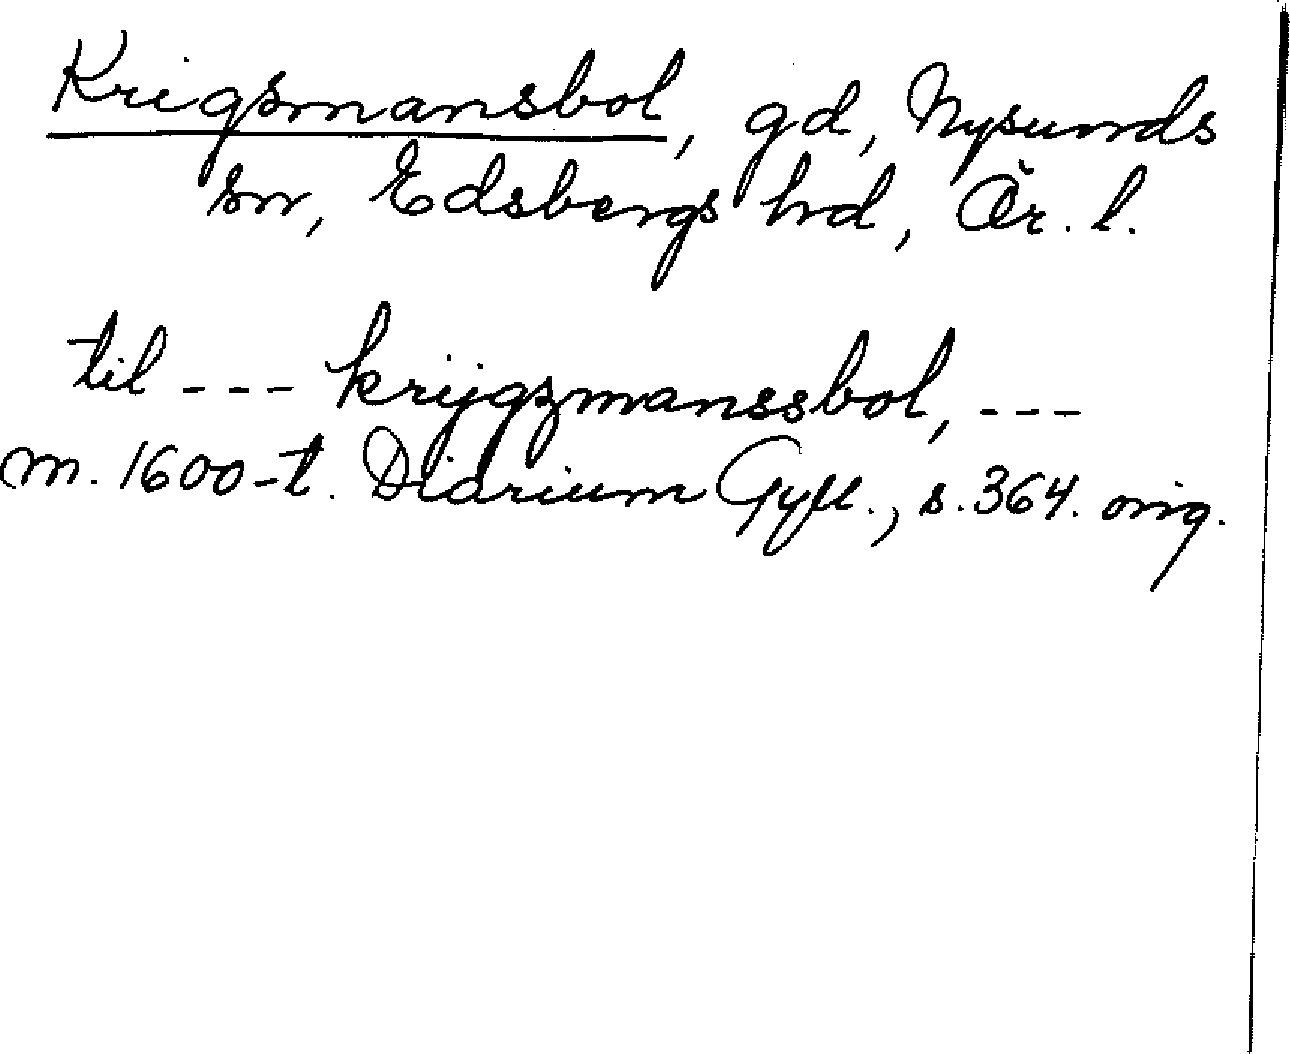 Krigsmansbol, gd, Nysunds
sn, Edsbergs hd, Ör. l.
til --- krijgzmanssbol, ---
m. 1600-t. Diarium Gyll., s. 364. orig.